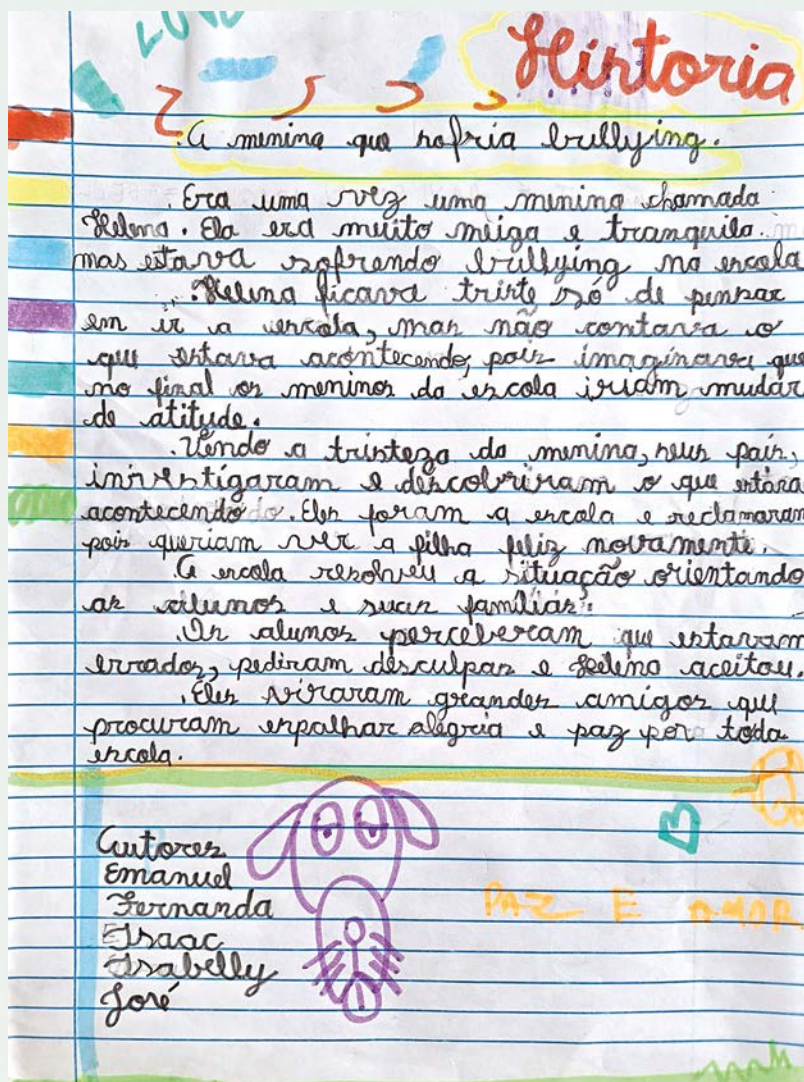 História
A menina que sofria bullying.
Era uma vez uma menina chamada
Helena. Ela era muito meiga e tranquila
mas estava sofrendo bullying na escola
Helena ficava triste só de pensar
em ir a escola, mas não contava o
que estava acontecendo, pois imaginava que
no final os meninos da escola iriam mudar
de atitude.
Vendo a tristeza da menina, seus pais,
investigaram e descobriram o que estava
acontecendo. Eles foram a escola e reclamaram
pois queriam ver a filha feliz novamente.
A escola resolveu a situação orientando
os alunos e suas famílias.
Os alunos perceberam que estavam
errados, pediram desculpas e Helena aceitou.
Eles viraram grandes amigos que
procuram espalhar alegria e paz por toda
escola.
Autores
Emanuel
Fernanda
Isaac
Isabelly
José
PAZ E AMOR